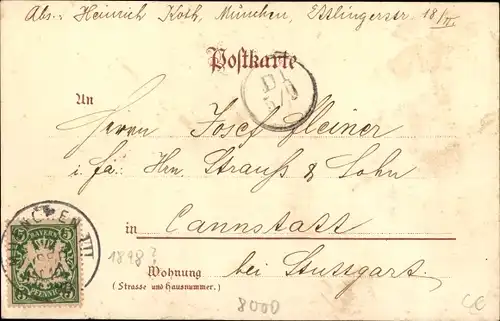 Abs.: Heinrich Koth, München, Ettlingerstr. 18/II.
Postkarte
An
Herrn Josef Gleiner
i. fa: Hrn. Strauss & Sohn
in Cannstatt
bei Stuttgart.
Wohnung
(Strasse und Hausnummer.)
MÜNCHEN VII
BAYERN
5 5
PFENNIG
1898?
8000